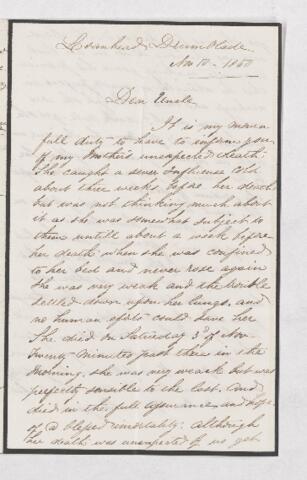 Cornhead Drumblade
Nov 10 - 1860
Dear Uncle
It is my mourn
full duty to have to inform you
of my Mothers unexpected death:
She caught a sever Influense cold
about three weeks before her death
but was not thinking much about
it as she was somewhat subject to
them untill about a week before
her death when she was confined
to her bed and never rose again
she was very weak and the trouble
settled down upon her lungs, and
no human eforts could have her
She died on Saturday 3d of Nov
twenty minutes past three in the
morning. she was very weack but was
perfectly sensible to the last. and
died in the full assurance and hope
of a blessed imortality: Although
her death was unexpected of us yet